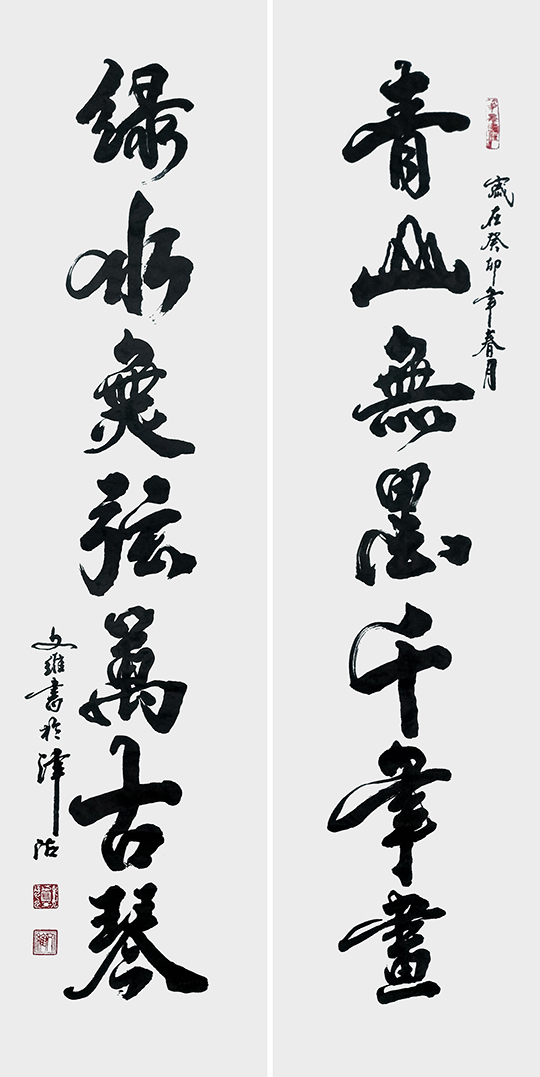 歲在癸卯年春月
青山無墨千年畫
綠水無弦萬古琴
文維書於津沽